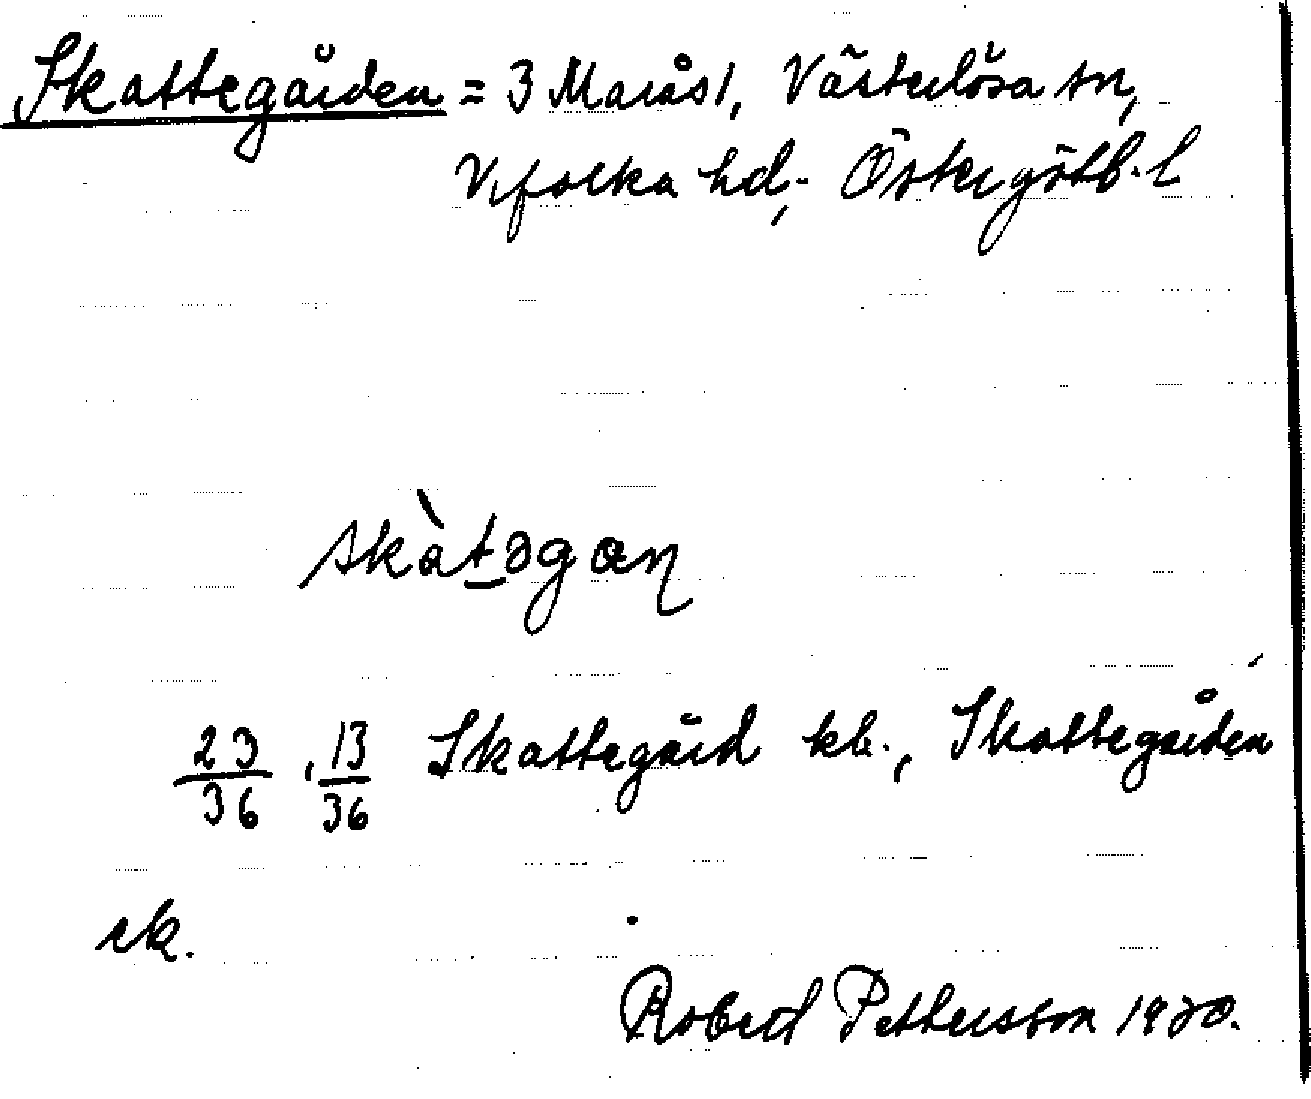 Skattegården = 3 Marås 1, Västerlösa sn,
Vifolka hd, Östergötl. l
skàtəgaɳ
23/36, 13/36 Skattegård kb., Skattegården
ek.
Robert Pettersson 1930.